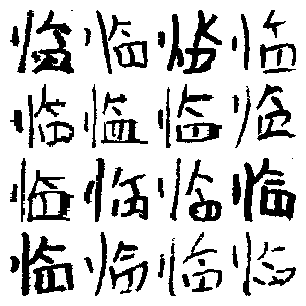 临临临临
临临临临
临临临临
临临临临